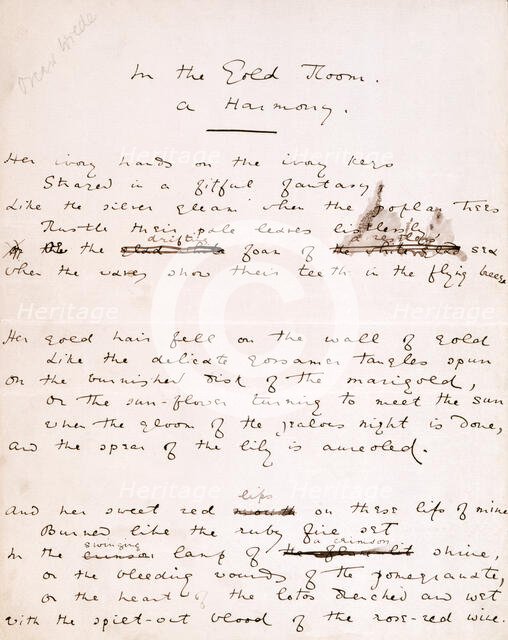 Oscar Wilde
In the Gold Room.
A Harmony.
Her ivory hands on the ivory keys
Strayed in a fitful fantasy
Like the silver gleam when the poplar trees
Rustle their pale leaves listlessly
drifting a restless
Or the the foam of sea
When the waves show their teeth in the flying breeze
Her gold hair fell on the wall of gold
Like the delicate gossamer tangles spun
On the burnished disk of the marigold,
Or the sun-flower turning to meet the sun
When the gloom of the jealous night is done,
And the spear of the lily is aureoled.
lips
And her sweet red mouth on these lips of mine
Burned like the ruby fire set
swinging a crimson
In the crimson lamp of shrine,
Or the bleeding wounds of the pomegranate,
Or the heart of the lotos drenched and wet
With the spilt-out blood of the rose-red wine.
Heritage
Heritage
Heritage
Heritage
Heritage
Heritage